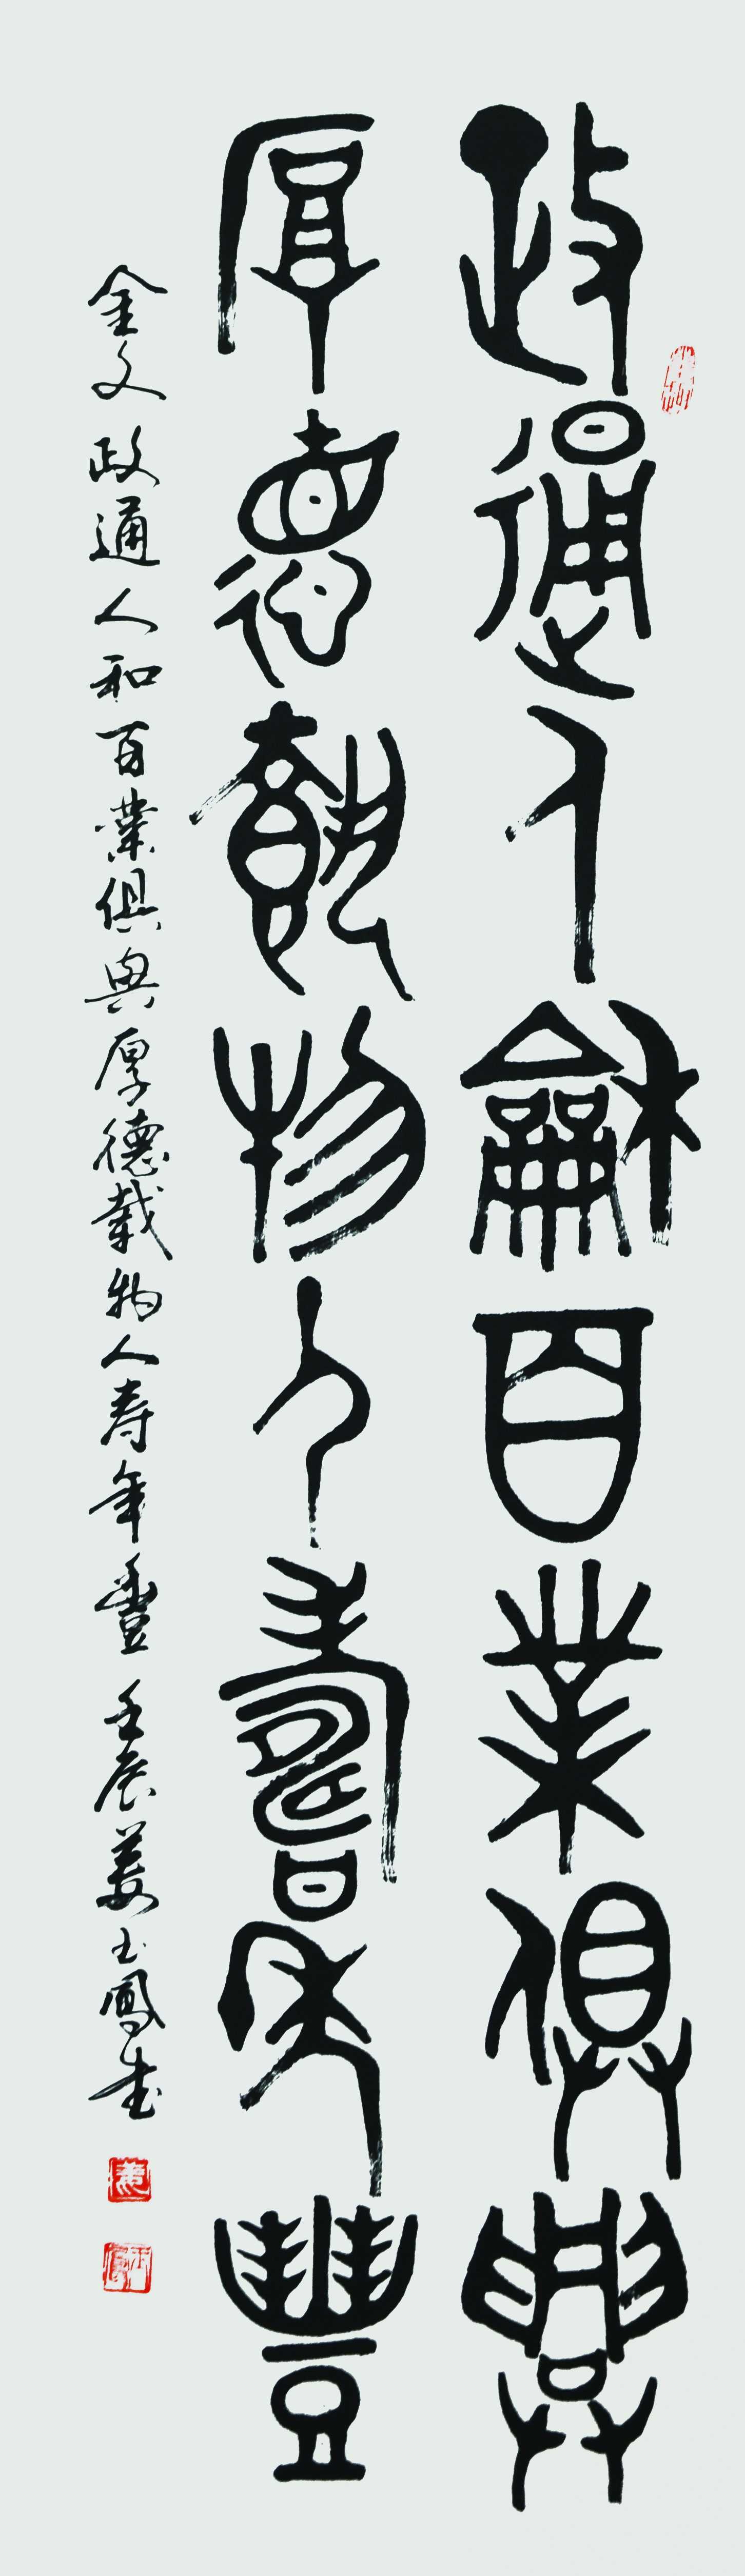 政通人龢百業俱興
厚德載物人壽年豐
金文 政通人和百業俱興厚德載物人寿年豐 壬辰姜玉鳳書